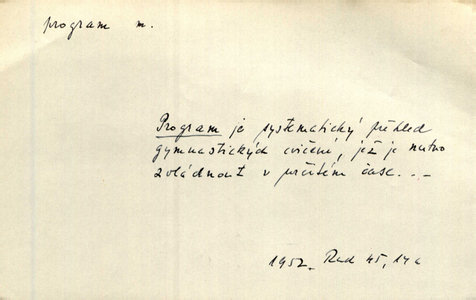 program m.
Program je systematický přehled
gymnastických cvičení, jež je nutno
zvládnout v určitém čase...
1952. Rad 45, 14a